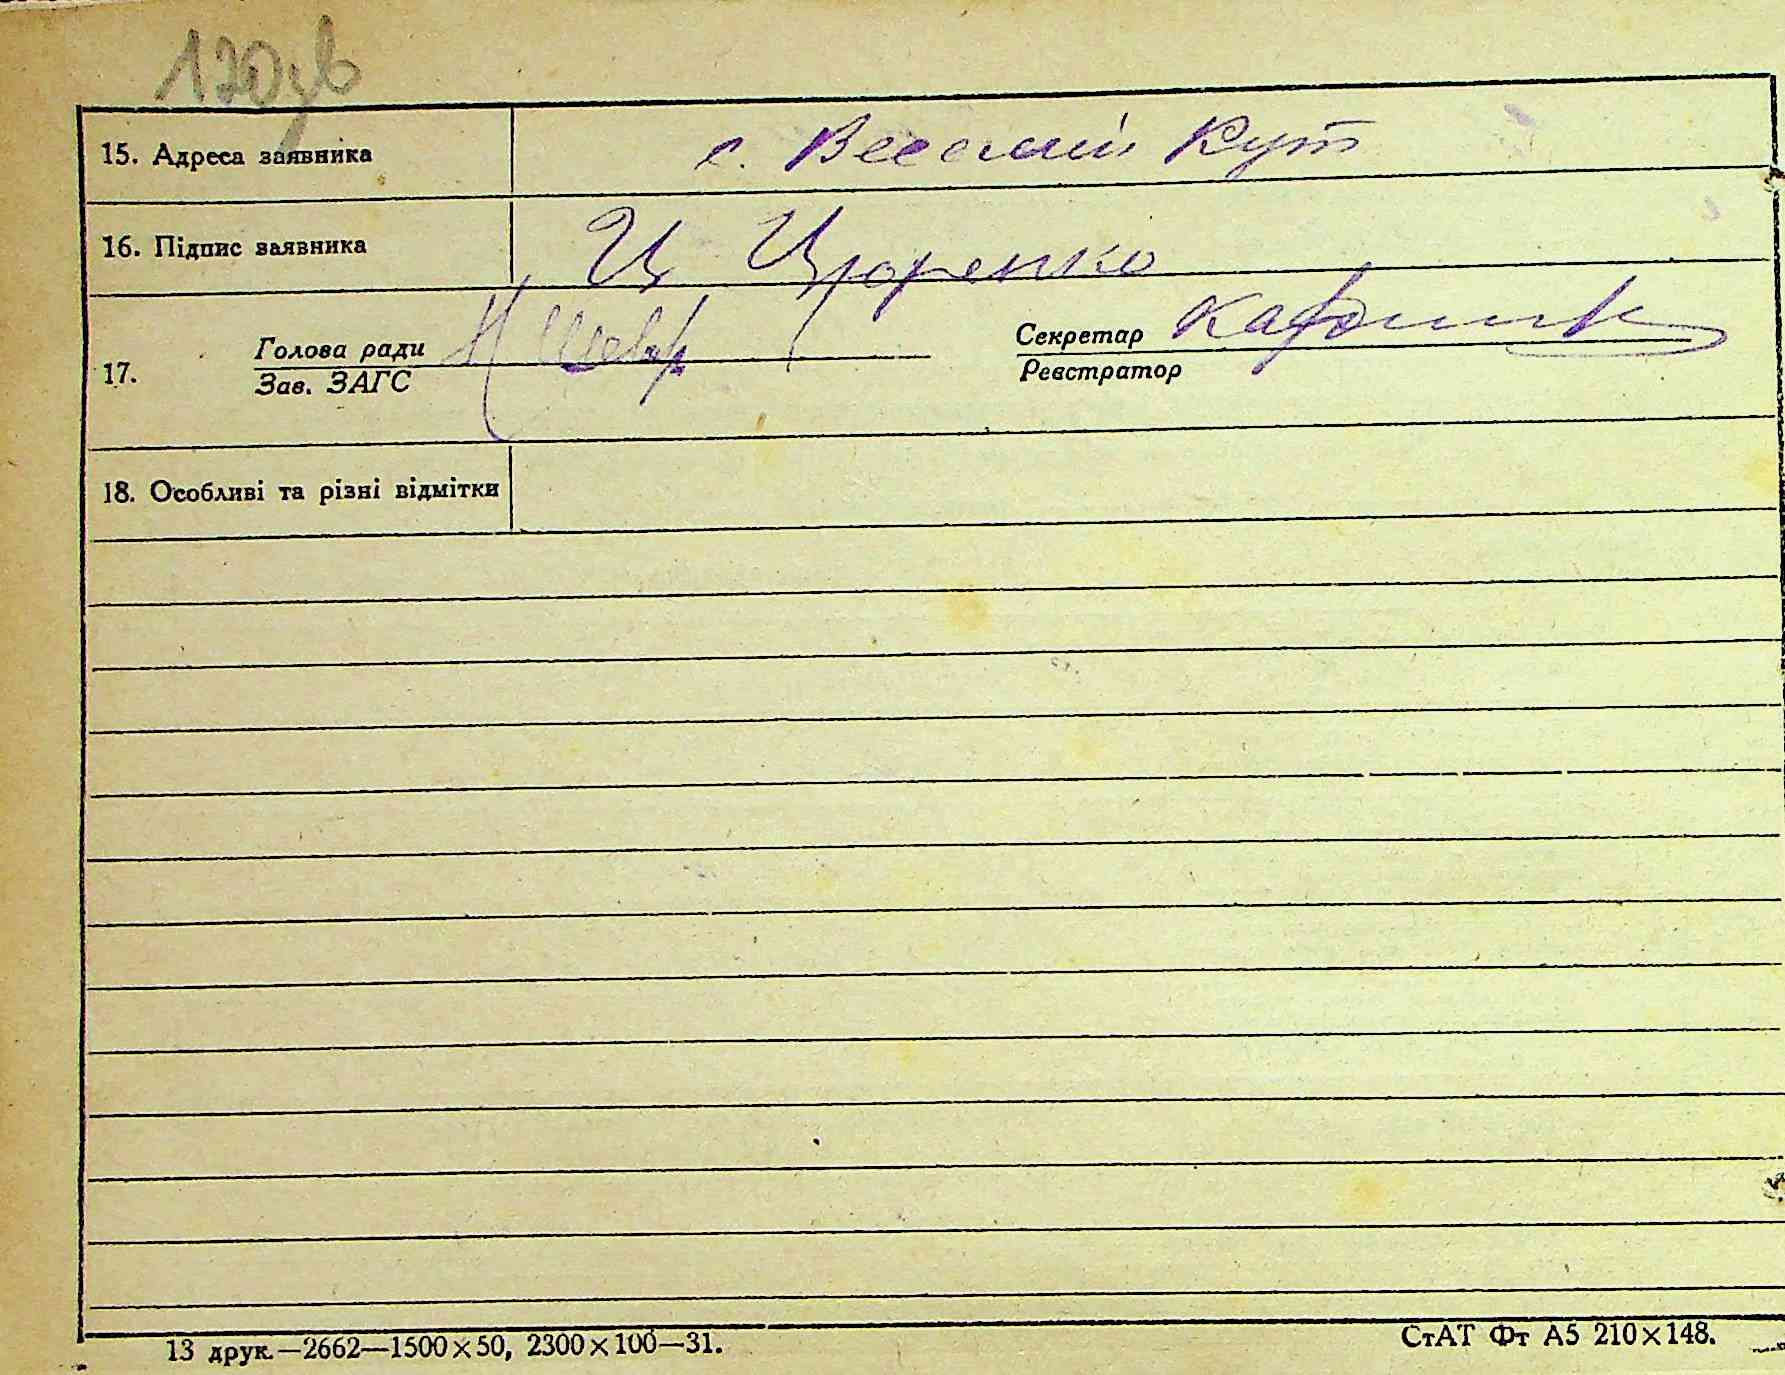 120зв
15. Адреса заявника с. Веселий Кут
16. Підпис заявника Ц Цюренко
Голова ради Секретар
17. Зав. ЗАГС Реєстратор
18. Особливі та різні відмітки
13 друк.—2662—1500×50, 2300×100—31. СтАТ Фт А5 210×148.